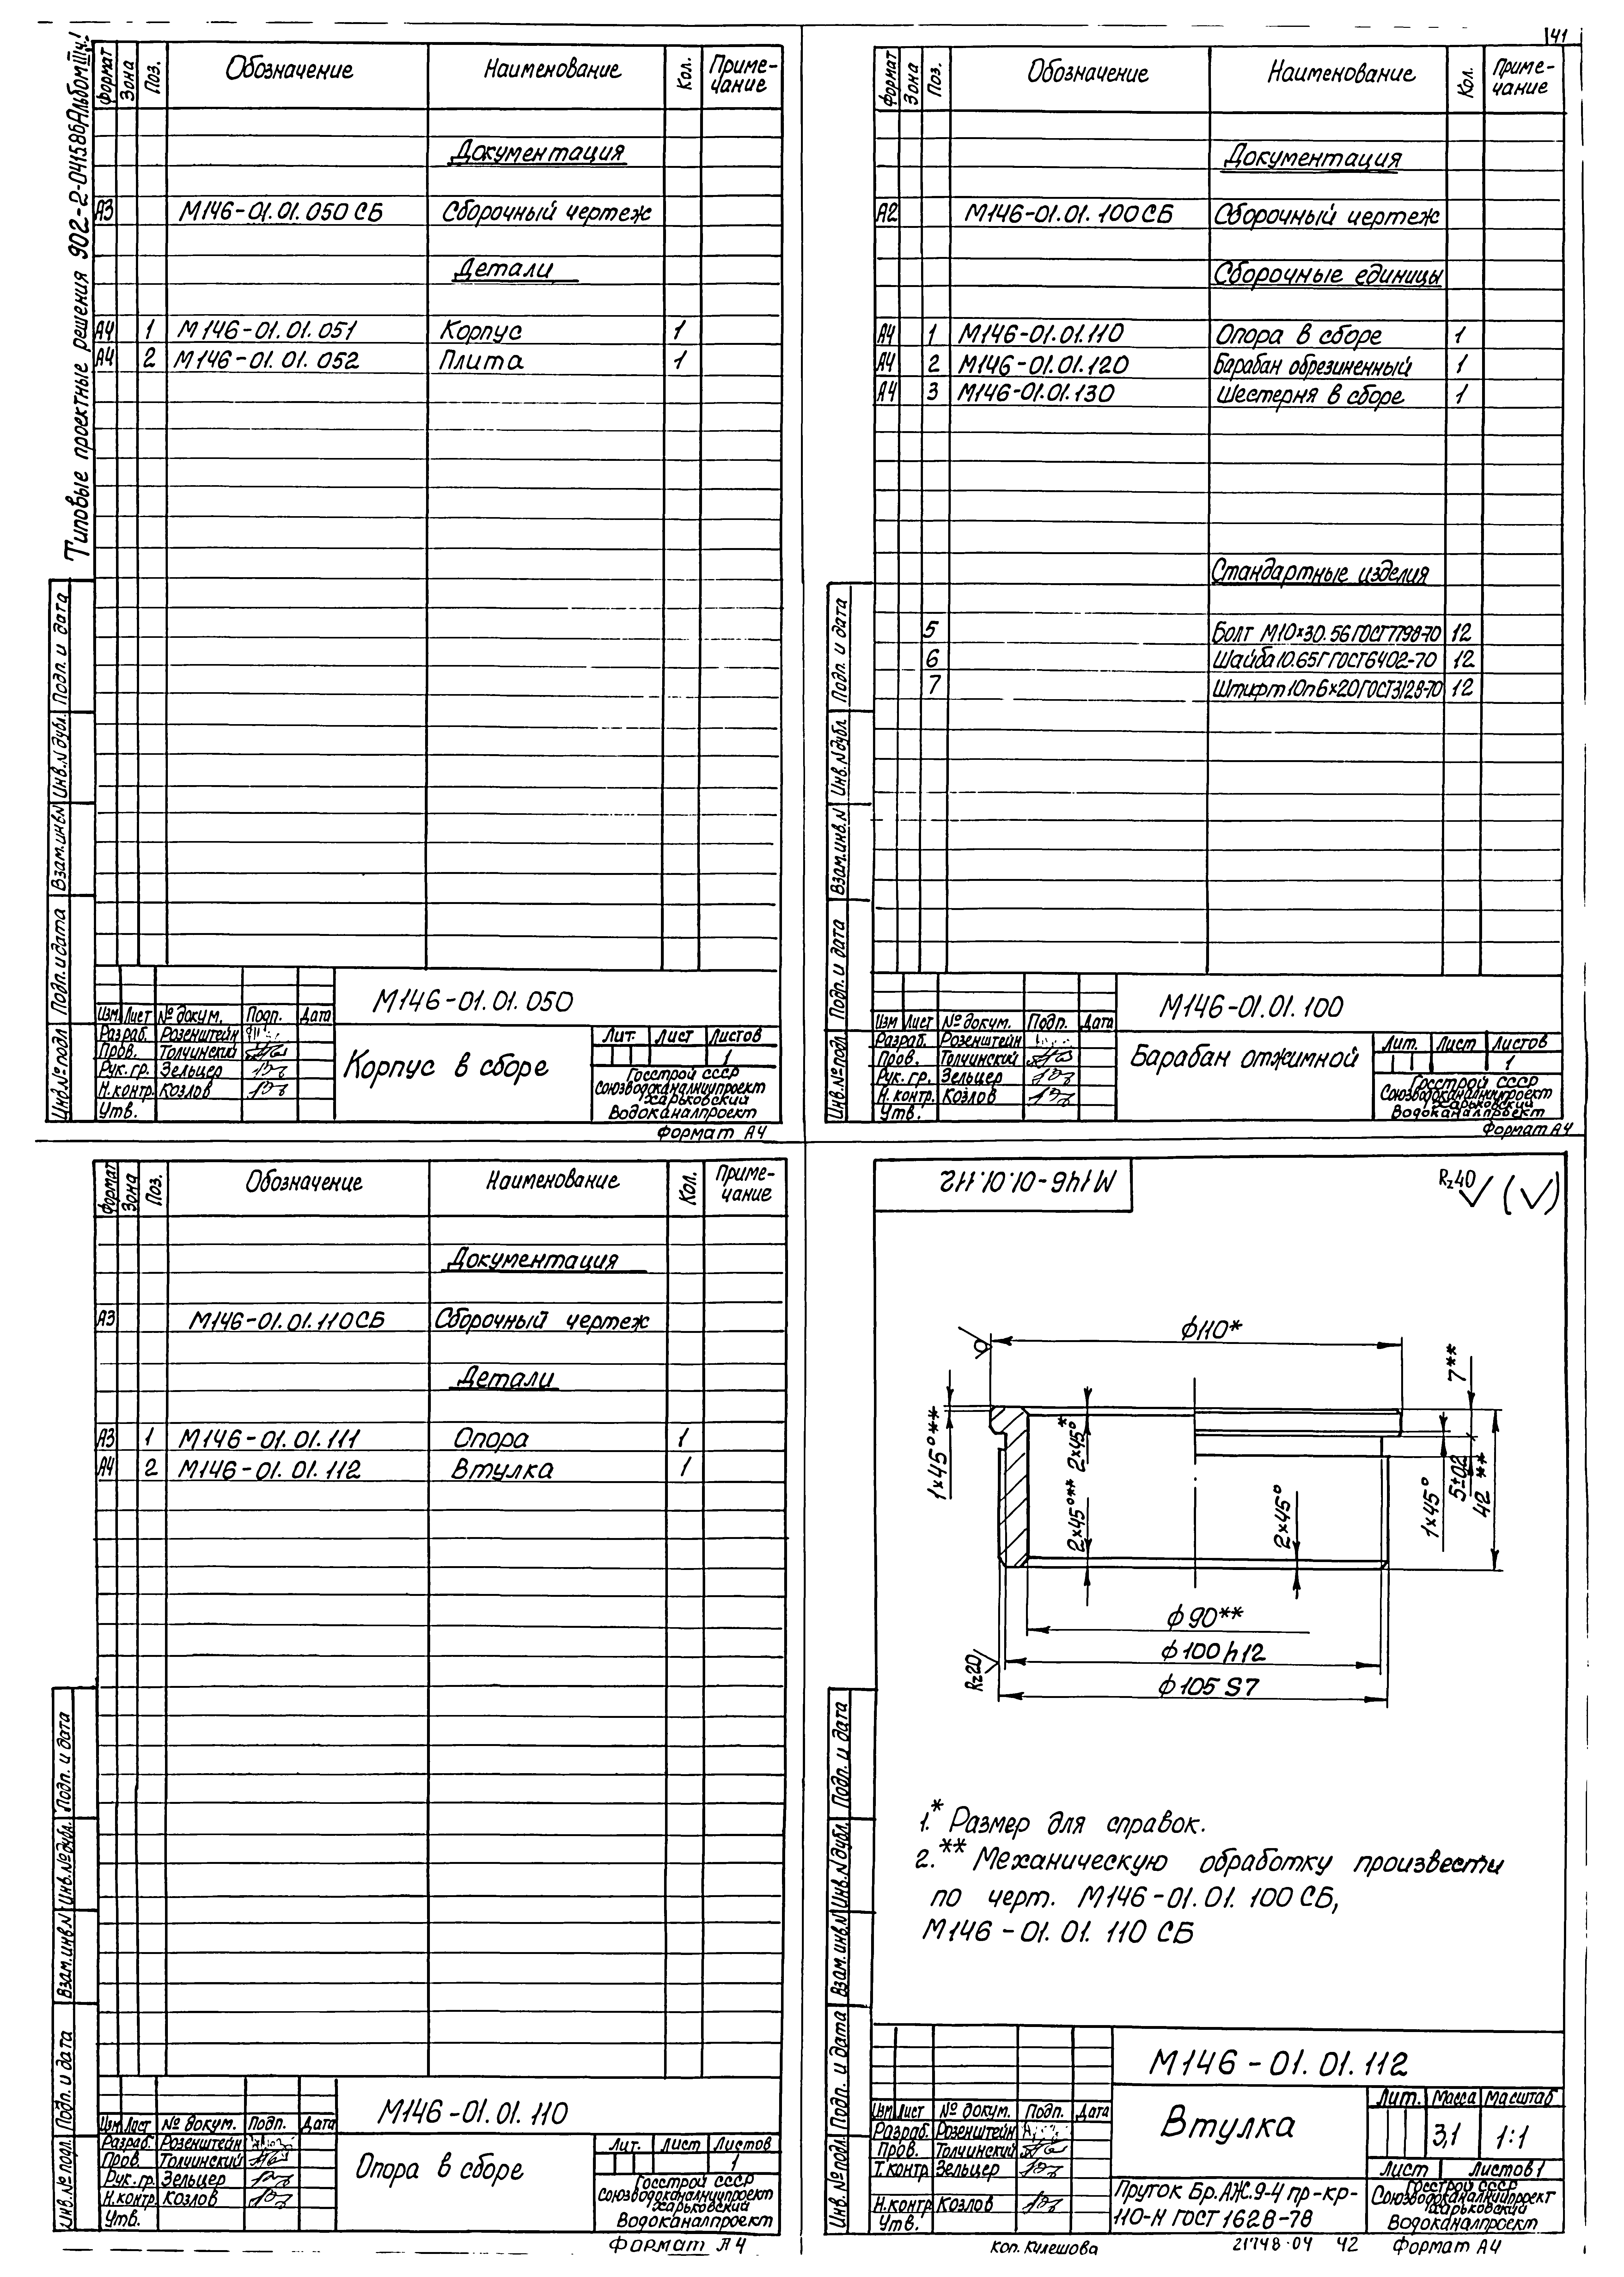 41
Типовые проектные решения 902-2-0415.86 Альбом III ч.1
Формат Зона Поз. Обозначение Наименование Кол. Приме-
чание
Документация
А3 М146-01.01.050 СБ Сборочный чертеж
Детали
А4 1 М146-01.01.051 Корпус 1
А4 2 М146-01.01.052 Плита 1
Подп. и дата
Инв.N дубл.
Взам.инв.N
Подп. и дата
Инв.№ подл
М146-01.01.050
Изм Лист № докум. Подп. Дата
Разраб. Розенштейн
Пров. Толчинский
Рук. гр. Зельцер
Н.контр. Козлов
Утв.
Корпус в сборе
Лит. Лист Листов
1
Госстрой СССР
Союзводоканалниипроект
Харьковский
Водоканалпроект
Формат А4
Формат Зона Поз. Обозначение Наименование Кол. Приме-
чание
Документация
А2 М146-01.01.100 СБ Сборочный чертеж
Сборочные единицы
А4 1 М146-01.01.110 Опора в сборе 1
А4 2 М146-01.01.120 Барабан обрезиненный 1
А4 3 М146-01.01.130 Шестерня в сборе 1
Стандартные изделия
5 Болт М10×30.56 ГОСТ7798-70 12
6 Шайба 10.65Г ГОСТ6402-70 12
7 Штифт 10п6×20 ГОСТ3128-70 12
Подп. и дата
Инв.N дубл
Взам.инв.N
Подп. и дата
Инв.№ подл.
М146-01.01.100
Изм Лист № докум. Подп. Дата
Разраб. Розенштейн
Пров. Толчинский
Рук. гр. Зельцер
Н.контр. Козлов
Утв.
Барабан отжимной
Лит. Лист Листов
1
Госстрой СССР
Союзводоканалниипроект
Харьковский
Водоканалпроект
Формат А4
Формат Зона Поз. Обозначение Наименование Кол. Приме-
чание
Документация
А3 М146-01.01.110 СБ Сборочный чертеж
Детали
А3 1 М146-01.01.111 Опора 1
А4 2 М146-01.01.112 Втулка 1
Подп. и дата
Инв.№ дубл.
Взам.инв.N
Подп. и дата
Инв.№ подл.
М146-01.01.110
Изм Лист № докум. Подп. Дата
Разраб. Розенштейн
Пров. Толчинский
Рук. гр. Зельцер
Н.контр. Козлов
Утв.
Опора в сборе
Лит. Лист Листов
1
Госстрой СССР
Союзводоканалниипроект
Харьковский
Водоканалпроект
Формат А4
М146-01.01.112
Rz40 (√)
ф110*
7**
1×45°**
2×45°*
2×45°**
2×45°
1×45°
5±0,2
42**
ф90**
ф100h12
Rz20
ф105 S7
1.* Размер для справок.
2.** Механическую обработку произвести
по черт. М146-01.01.100 СБ,
М146-01.01.110 СБ
Подп. и дата
Инв.N дубл.
Взам.инв.N
Подп. и дата
Инв.№ подл.
М146-01.01.112
Изм Лист № докум. Подп. Дата
Разраб. Розенштейн
Пров. Толчинский
Т.контр Зельцер
Н.контр Козлов
Утв.
Втулка
Лит. Масса Масштаб
3,1 1:1
Лист Листов 1
Пруток Бр.АЖ.9-4 пр-кр-
110-Н ГОСТ 1628-78
Госстрой СССР
Союзводоканалниипроект
Харьковский
Водоканалпроект
коп. Кулешова 21748-04 42 Формат А4